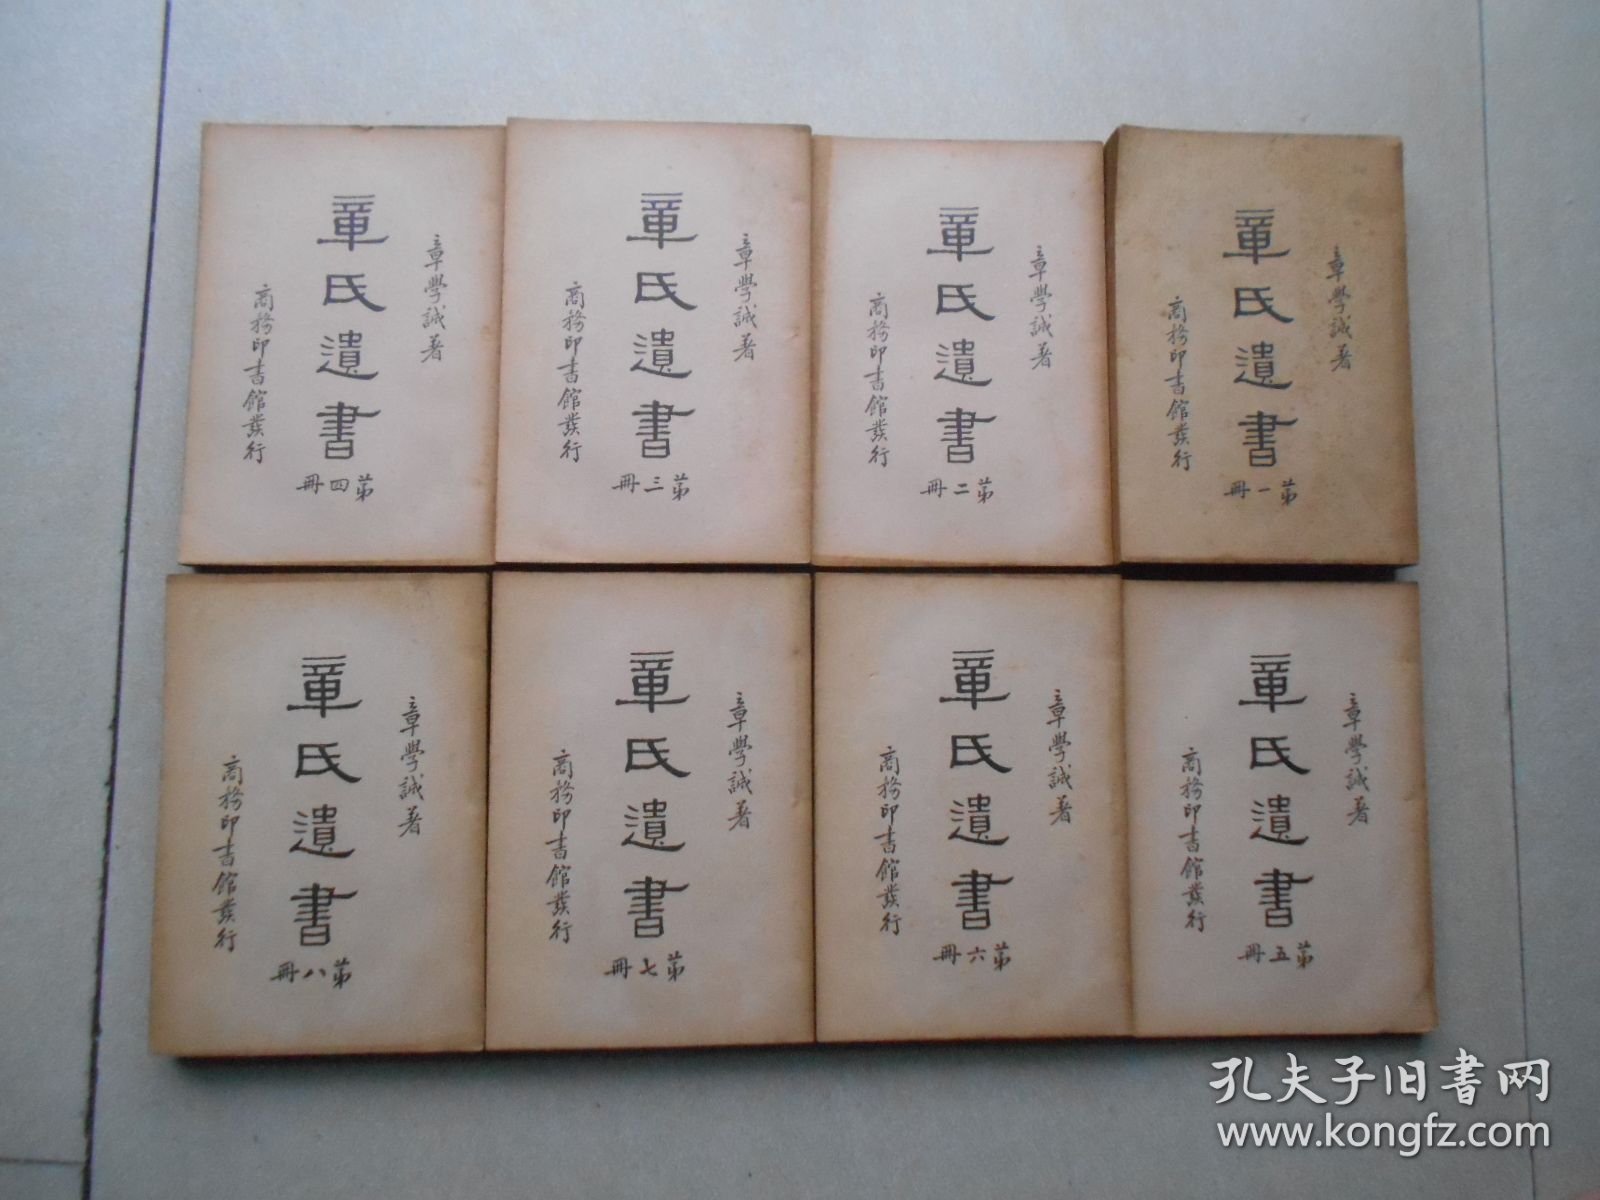 章學誠著
章氏遺書
第一冊
商務印書館發行
章學誠著
章氏遺書
第二冊
商務印書館發行
章學誠著
章氏遺書
第三冊
商務印書館發行
章學誠著
章氏遺書
第四冊
商務印書館發行
章學誠著
章氏遺書
第五冊
商務印書館發行
章學誠著
章氏遺書
第六冊
商務印書館發行
章學誠著
章氏遺書
第七冊
商務印書館發行
章學誠著
章氏遺書
第八冊
商務印書館發行
孔夫子旧书网
www.kongfz.com